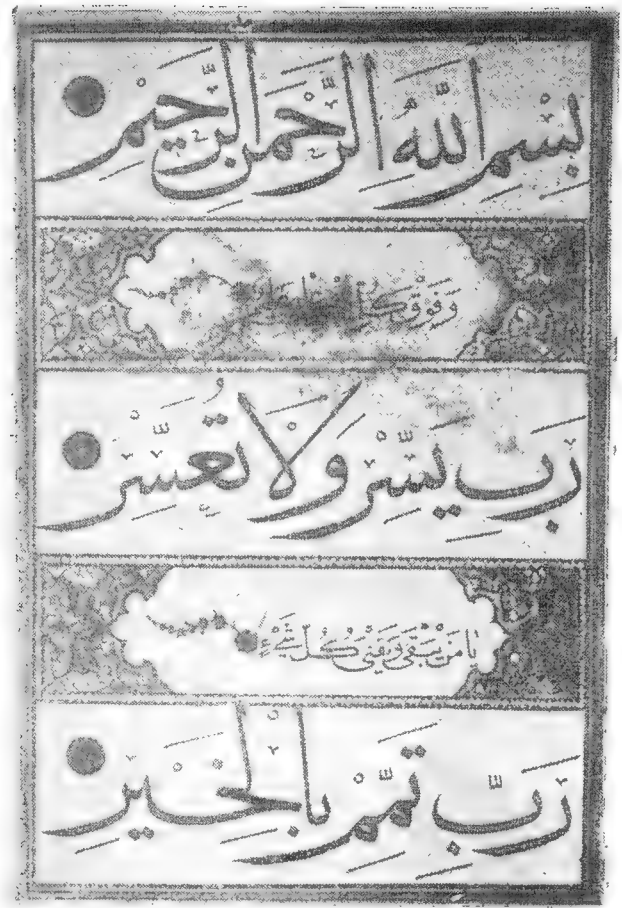 بِسْمِ اللّٰهِ الرَّحْمٰنِ الرَّحِيْمِ
وَفَوْقَ كُلِّ
رَبِّ يَسِّرْ وَلَا تُعَسِّرْ
يَا مَنْ يَبْقَى وَيَفْنَى كُلُّ شَيْءٍ
رَبِّ تَمِّمْ بِالْخَيْرِ